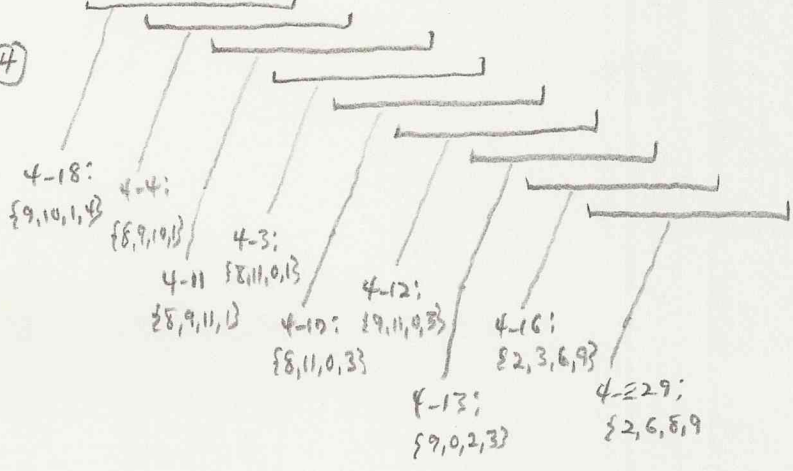 4
4-18:
{9,10,1,4}
4-4:
{8,9,10,1}
4-11
{8,9,11,1}
4-3:
{8,11,0,1}
{8,11,0,3}
4-12:
{9,11,0,3}
4-13:
{9,0,2,3}
4-16:
{2,3,6,9}
4-Z29:
{2,6,8,9